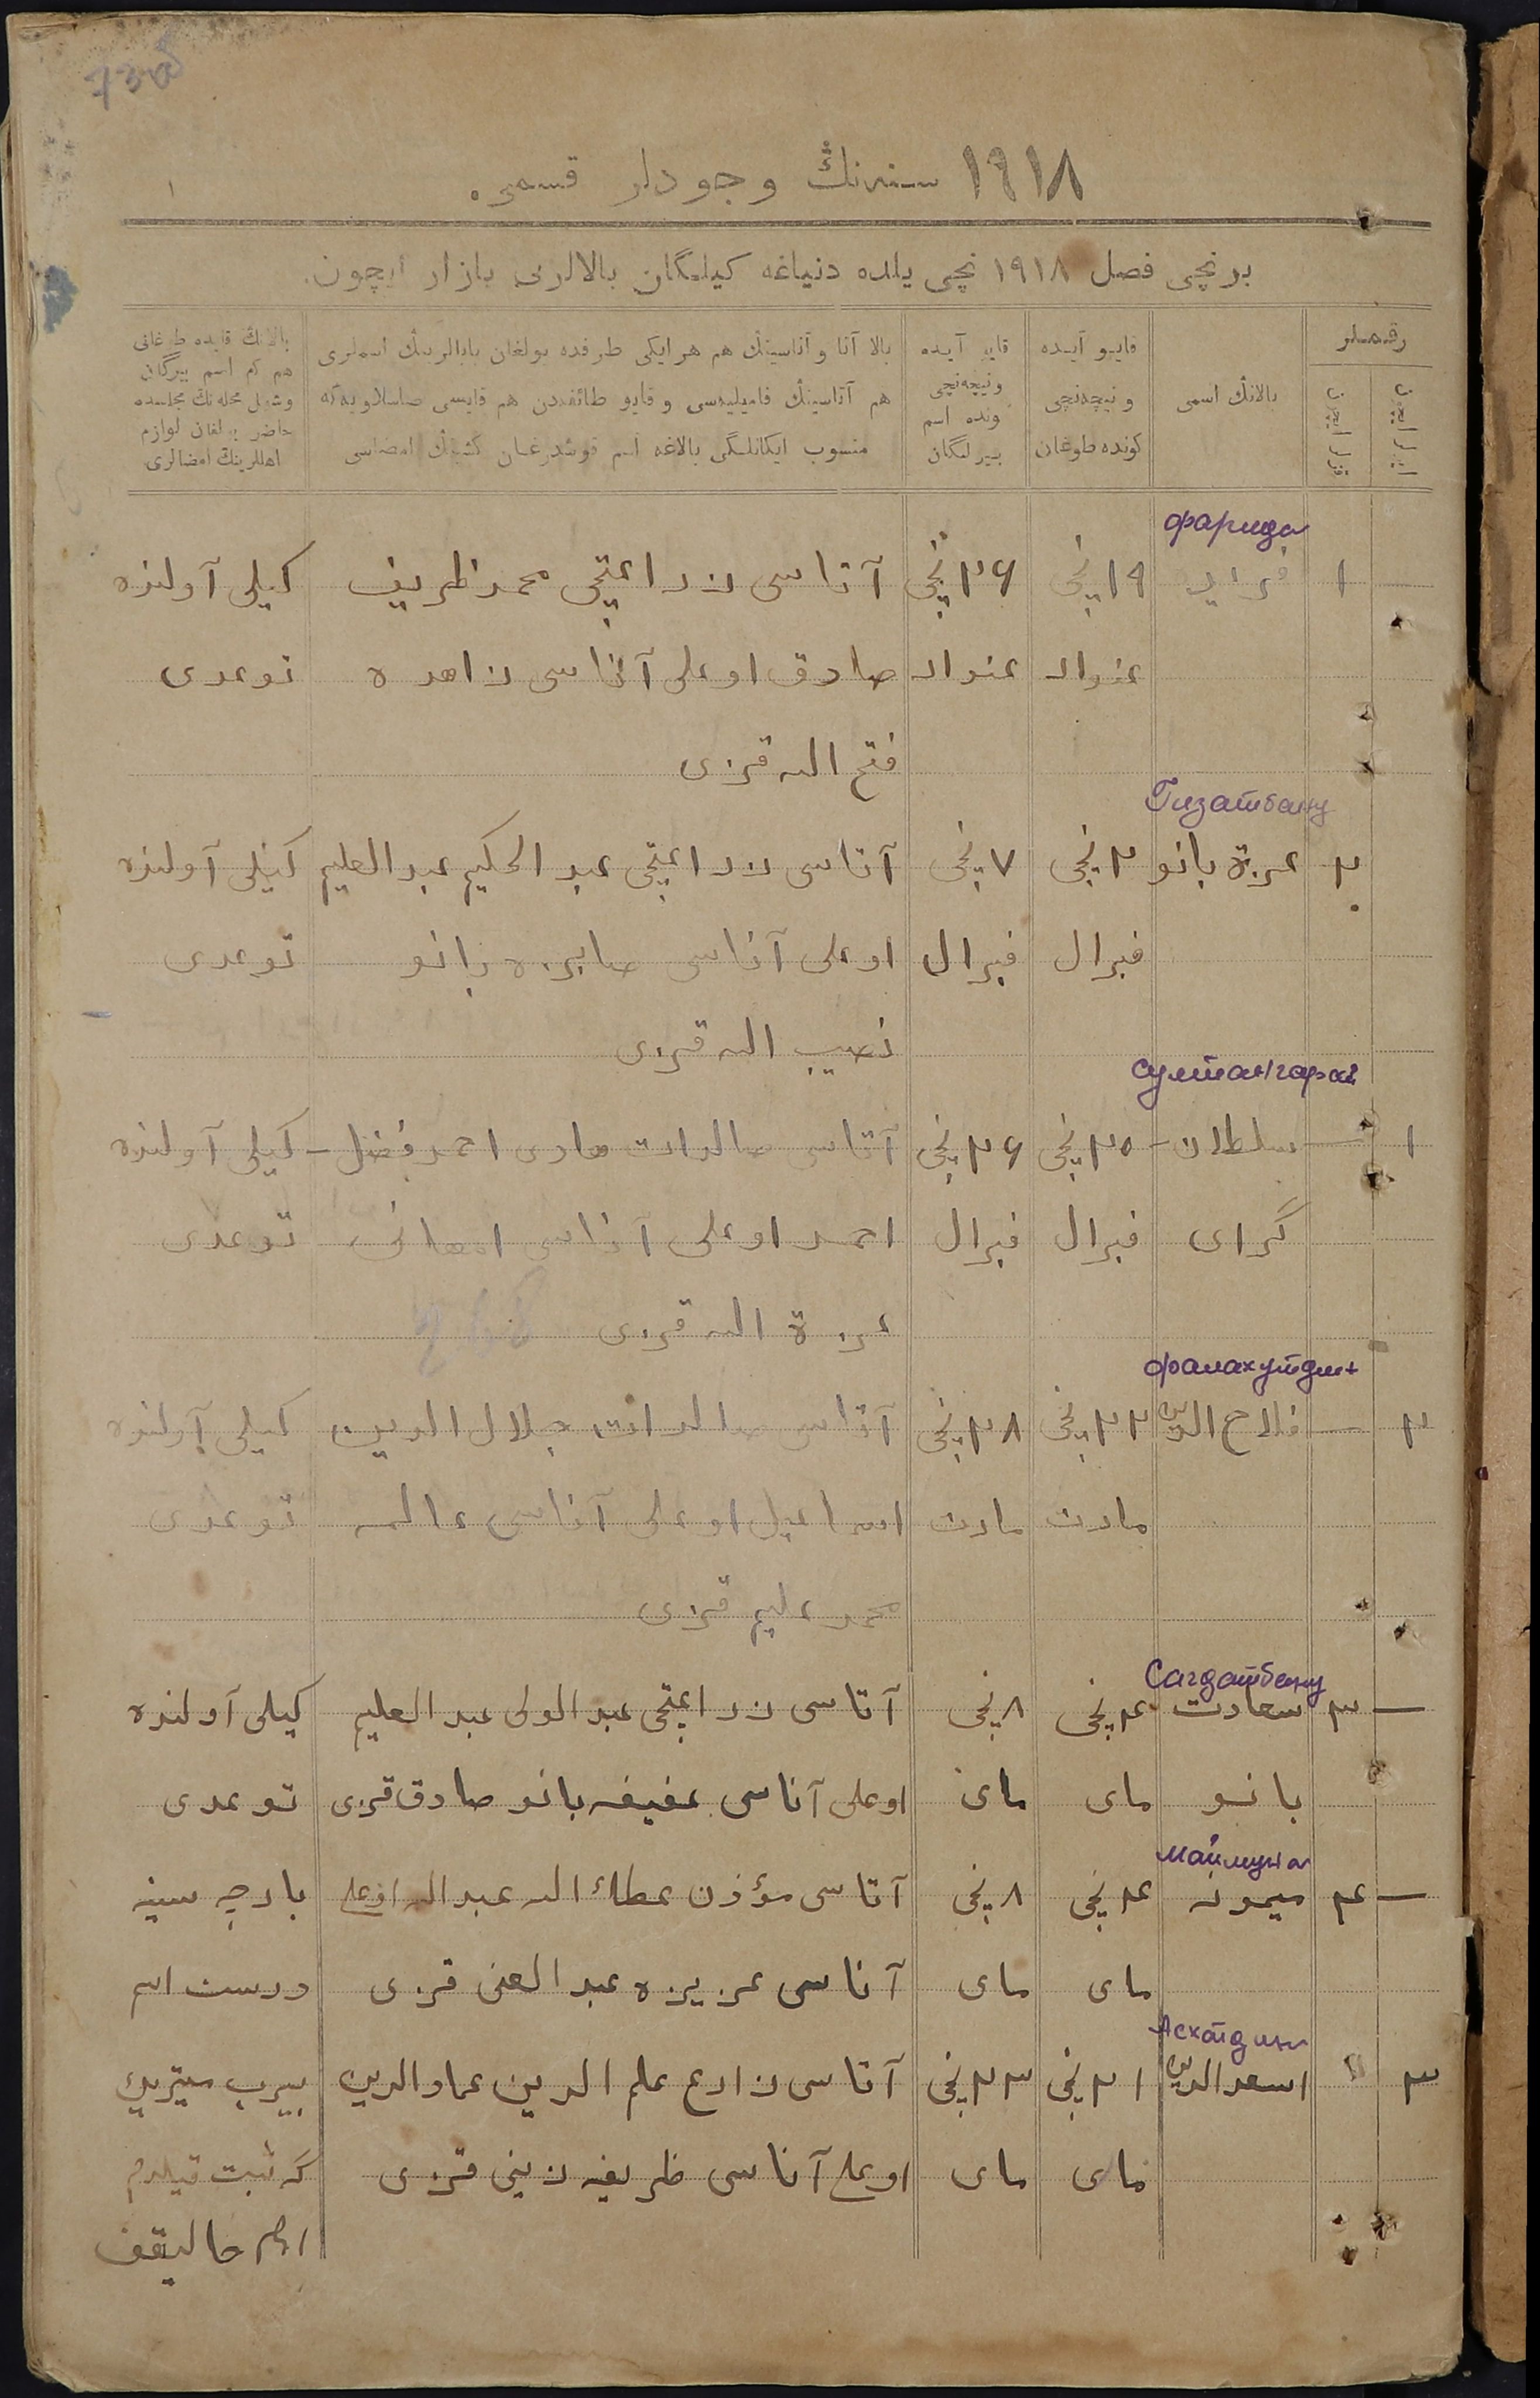 738
۱۹۱۸ سنه‌نڭ وجودلر قسمی.
۱
برنچی فصل ۱۹۱۸ نچی یلده دنیاغه کیلمگان بالالرنی یازار ایچون.
رقملر
بالانڭ اسمی
قایو آیده
و نیچه‌نچی
کونده طوغان
قایو آیده
و نیچه‌نچی
کونده اسم
بیرلگان
بالا آتا و آناسینڭ هم هر ایکی طرفده بولغان بابالرینڭ اسملری
هم آتاسینڭ فامیلیه‌سی و قایو طائفه‌دن هم قایسی
منسوب ایکانلگی بالاغه اسم قوشدرغان کشینڭ امضاسی
بالانڭ قایده طوغانی
هم کم اسم بیرگان
وشول محله‌نڭ مجلسده
حاضر بولغان لوازم
اهللرینڭ امضالری
Фарида
۱ فریده ۱۹ نچی ۲۶ نچی آتاسی زراعتچی محمد ظریف کیلی آولنده
غنوار غنوار صادق اوغلی آناسی زاهده توغدی
فتح الله قزی
Гизатбану
۲ عزة بانو ۲ نچی ۷ نچی آتاسی زراعتچی عبد الحکیم عبد العلیم کیلی آولنده
فبرال فبرال اوغلی آناسی صابره بانو توغدی
نصیب الله قزی
Султангарай
۱ — سلطان ۲۵ نچی ۲۶ نچی آتاسی صالدات هادی احمد فضل کیلی آولنده
گرای فبرال فبرال احمد اوغلی آناسی توغدی
عزة الله قزی
Фалахутдин
۲ — فلاح الدین ۲۲ نچی ۲۸ نچی آتاسی صالدات جلال الدین کیلی آولنده
مارت مارت اسماعیل اوغلی آناسی عالمه توغدی
محمد علیم قزی
Сагдатбану
— ۳ سعادت ۴ نچی ۸ نچی آتاسی زراعتچی عبد الولی عبد العلیم کیلی آولنده
بانو مای مای اوغلی آناسی عفیفه بانو صادق قزی توغدی
Маймуна
— ۴ میمونه ۴ نچی ۸ نچی آتاسی مؤذن عطاء الله عبد الله اوغلی بارچه سینه
مای مای آناسی عزیزه عبد الغنی قزی درست اسم
Асхатдин
۳ اسعد الدین ۲۱ نچی ۲۳ نچی آتاسی زارع علم الدین عماد الدین بیرب میتریك
مای مای اوغلی آناسی ظریفه زینی قزی که ثبت قیلدم
امام خالیقف